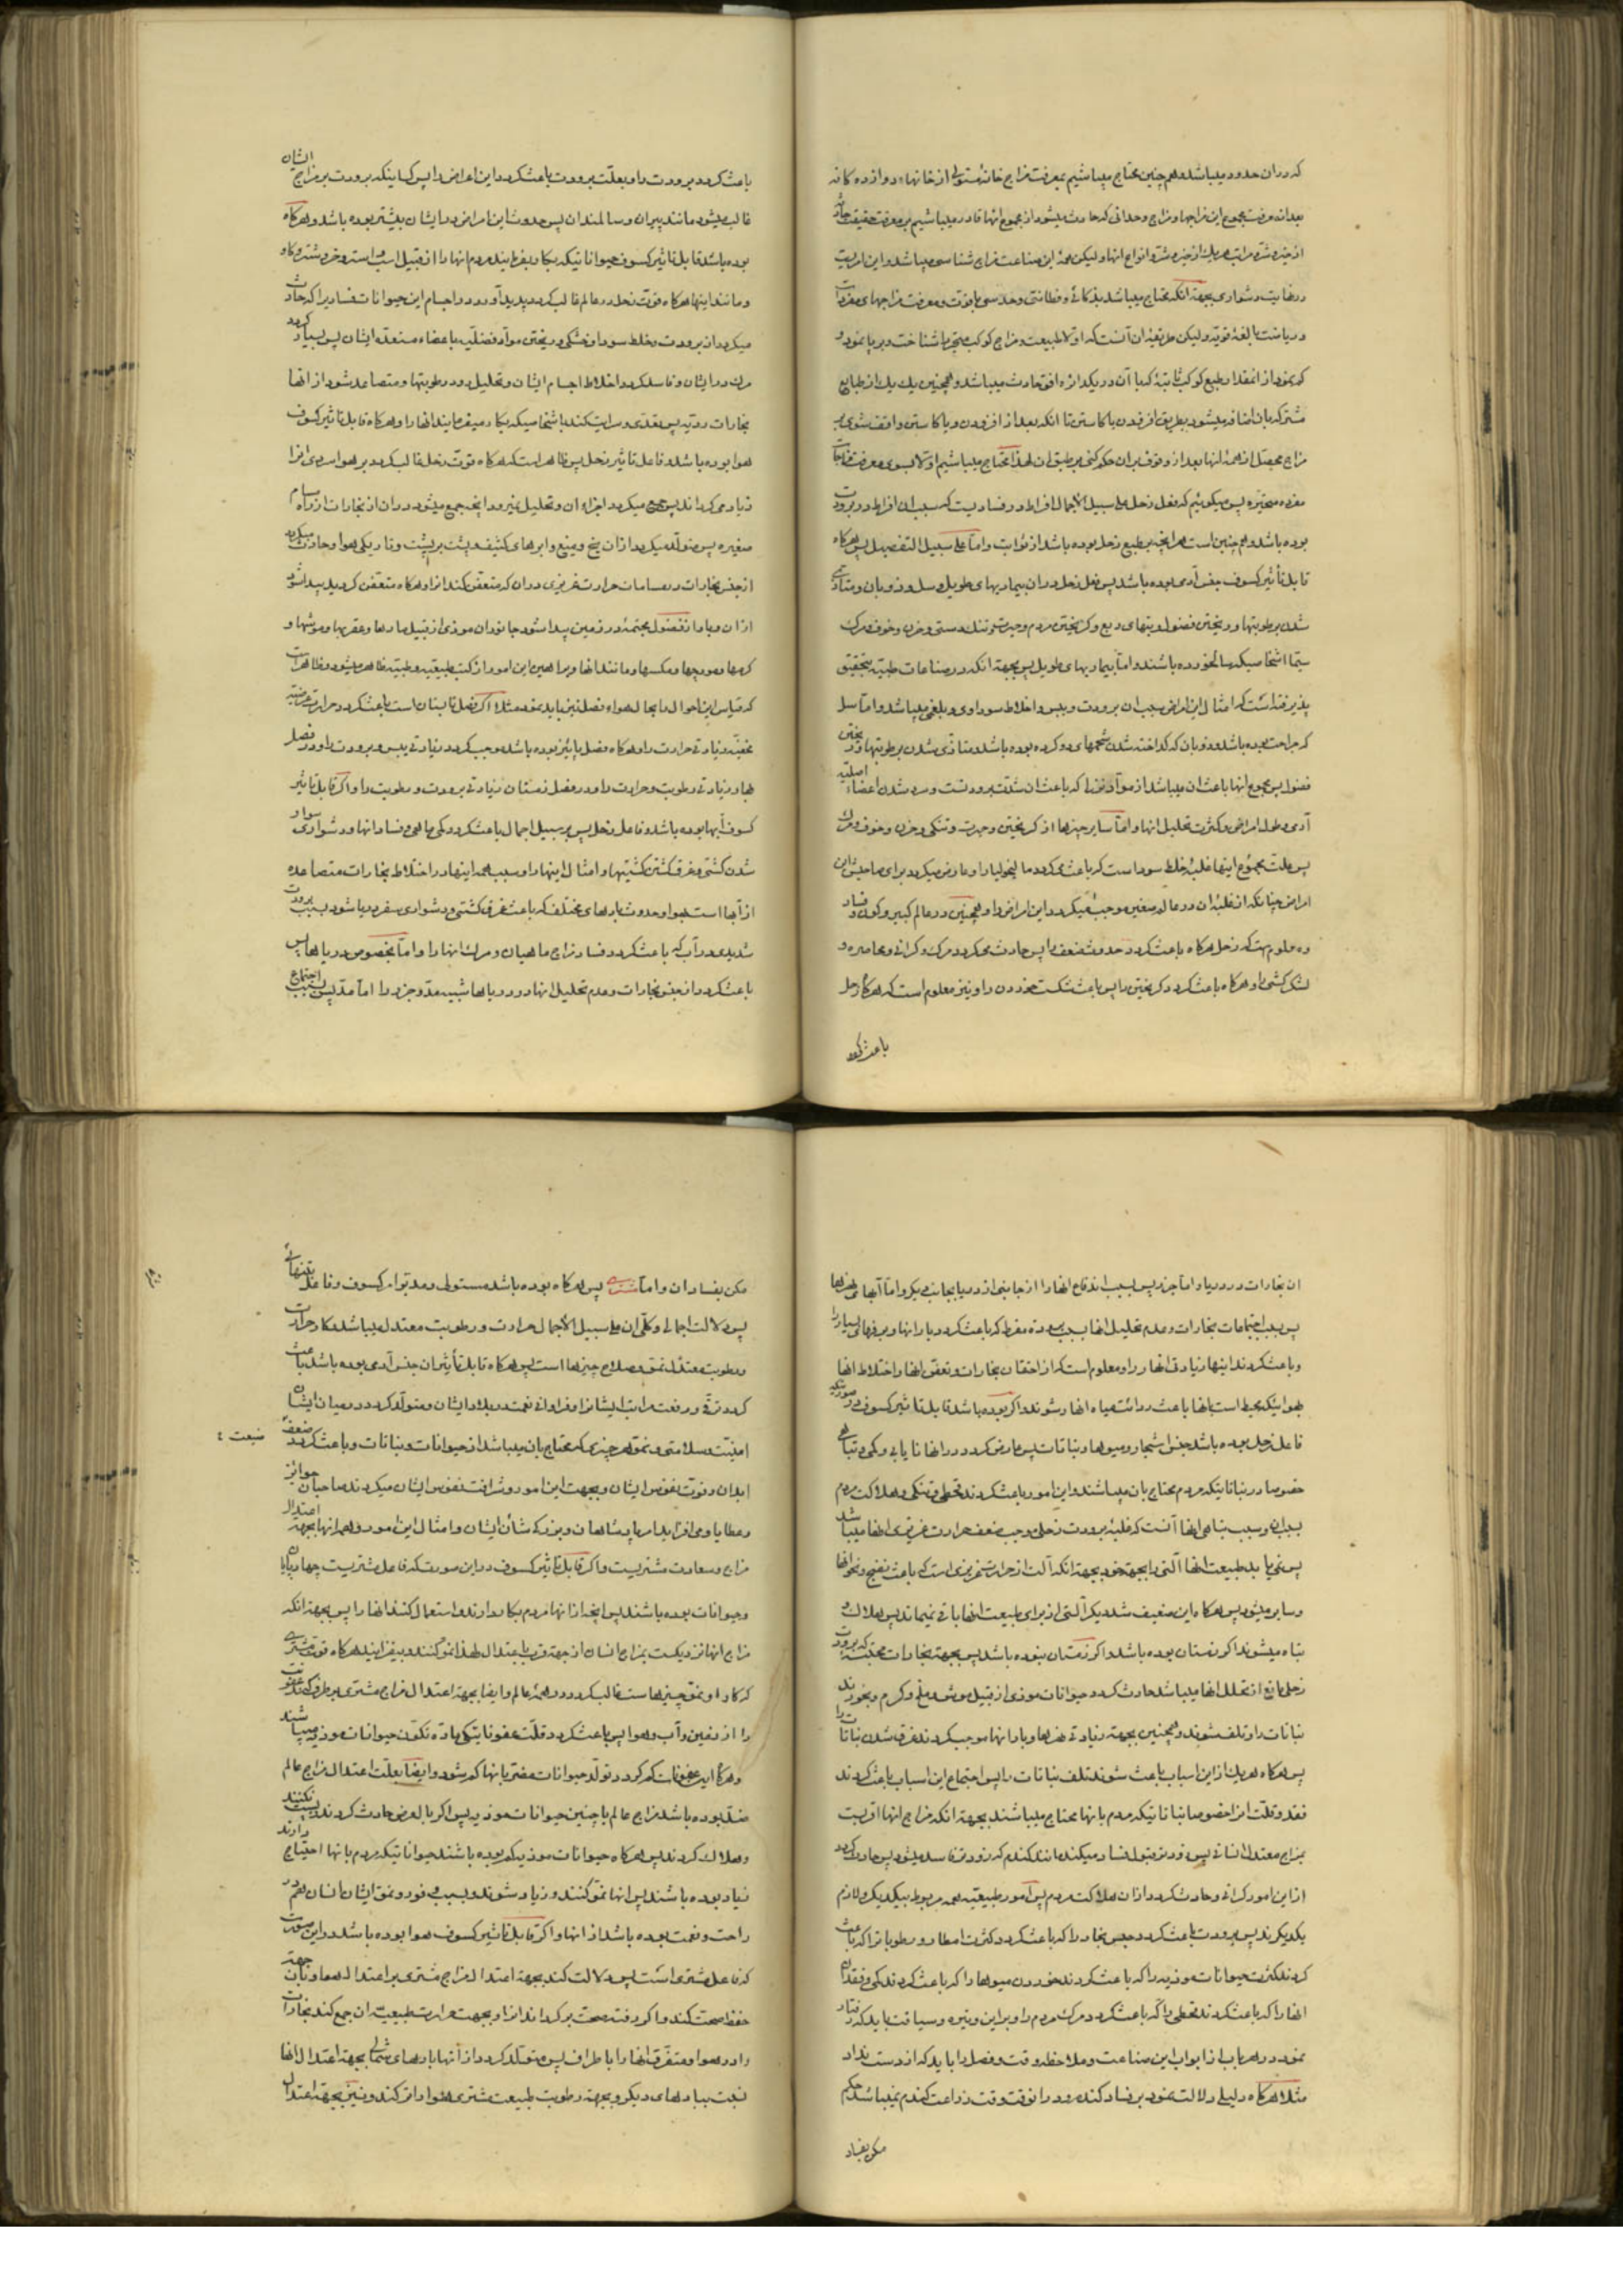 که در ان حدود میباشد و همچنین محتاج میباشیم بمعرفت مزاج خانه مستولی از خانهاء دوازده کانه
بعد از معرفت مجموع این مزاجها و مزاج وحدانی که حادث میشود از مجموع انها قادر میباشیم بر معرفت حقیقت حادث
از خیر و شر و مراتب هر یک از خیر و شر و انواع انها و لیکن همهٔ این صناعت مزاج شناسی میباشد و این امریست
در نهایت دشواری بجهة انکه محتاج میباشد بذکائی و فطانتی و حدسی با قوت و معرفت مزاجهای مفردات
و ریاضت بالغهٔ قویه و لیکن طریقهٔ ان آنست که اولا طبیعت و مزاج کوکب متحیر را شناخت
که نمود از انقدار طبع کوکب ثابتهٔ که با آن در یکدرجه افق حادث میباشد و همچنین یک یک از طبایع
مشترکه بان اضافه میشود بطریق افزودن یا کاستن تا انکه بعد از افزودن و یا کاستن واقف شوی بر
مزاج محصل از همهٔ انها بعد از وقوف بران حکم کنی بر طبق ان لهذا محتاج میباشیم اولا بسوی معرفت مزاجات
مفرده متحیره پس میکوئیم که فعل زحل علی سبیل الاجمال افراط در فسادیست که سبب ان افراط در برودت
بوده باشد و همچنین است هرانچه بر طبع زحل بوده باشد از ثوابت و اما علی سبیل التفصیل پس هرکاه
قابل تأثیر کسوف جنس آدمی بوده باشد پس فعل زحل دران بیماریهای طویل و سل و ذوبان و متاذی
شدن برطوبتها و ریختن فضول و تبهای ربع و کریختن مردم و حیرت و تنک دستی و حزن و خوف و مرک
سیما اشخاصیکه سالخورده باشند و اما بیماریهای طویل پس بجهة انکه در صناعات طبیه بتحقیق
پذیرفته است که امثال این امراض سبب ان برودت و یبس و اخلاط سوداوی و بلغمی میباشد و اما سل
که جراحت بوده باشد و ذوبان که کداخته شدن شحمهای و کرده بوده باشد و متاذی شدن برطوبتها و ریختن
فضول پس مجموع انها باعث ان میباشد از مواد نوازل که باعث ان شدت برودتست و سرد شدن اعضاء اصلیهٔ
آدمی و طول امراض و کثرت تحلیل انها و اما سایر چیزها از کریختن و حیرت و تنکی و حزن و خوف و مرک
پس علت مجموع اینها غلبهٔ خلط سوداست که باعث میکردد مالیخولیا را و عارض میکردد برای صاحبش این
امراض چنانکه از غلبهٔ ان در عالم صغیر موجب میکردد این امراض را و همچنین در عالم کبیر و کون و فساد
و معلومست که زحل هرکاه باعث کردد حدوث ضعف را پس حادث میکردد مرک و کرانی و محاصره و
لشکر کشی را و هرکاه باعث کردد کریختن را پس باعث شکست خوردن را و نیز معلوم است که هرکاه زحل
باعث کردد
باعث کردد برودت را و بعلت برودت باعث کردد این امراض را پس کسانیکه برودت بر مزاج ایشان
غالب میشود مانند پیران و سالمندان پس حدوث این امراض در ایشان بیشتر بوده باشد و هرکاه
بوده باشد قابل تاثیر کسوف حیواناتیکه بکار میفرمایند مردم انها را از قبیل اسب و استر و خر و شتر و کاو
و مانند اینها هرکاه قوت زحل در عالم غالب کردد پدید آورد در اجسام این حیوانات فسادیرا که حادث
میکردد از برودت و خلط سودا و خشکی و ریختن مواد فضلیه باعضاء منفعله ایشان پس بسیار کردد
مرک در ایشان و فاسد کردد اخلاط اجسام ایشان و تحلیل رود رطوبتها و متصاعد شود از انها
بخارات ردیه پس تعدی و سرایت کند باشخاصیکه بکار میفرمایند انها را و هرکاه قابل تاثیر کسوف
هوا بوده باشد و فاعل تاثیر زحل پس ظاهر است که هرکاه قوت زحل غالب کردد بر هوا سردی انرا
زیاد می کرداند پس جمع میکردد اجزاء ان و تحلیل نمیرود انچه جمع میشود دران از بخارات از راه مسام
صغیره پس متولد میکردد ازان یخ و میغ و ابرهای کثیف پشت بر پشت و تاریکی هوا و حادث میکردد
از حبس بخارات در مسامات حرارت غریزی دران که متعفن کند انرا و هرکاه متعفن کردید پیدا شود
ازان وبا و از فضول مجتمعهٔ در زمین پیدا شود جانوران موذی از قبیل مارها و عقربها و موشها و
کرمها و مورچها و مکسها و مانند انها و براهین این امور از کتب طبیعیه و طبیه ظاهر میشود و ظاهر است
که قیاس این احوال را بحال هواء فصل نیز باید نمود مثلا اکر فصل تابستان است باعث کردد حرارت عرضیه
عفنیه و زیادتی حرارت را و هرکاه فصل پائیز بوده باشد موجب کردد زیادتی یبس و برودت را و در فصل
بهار زیادتی رطوبت و حرارت را و در فصل زمستان زیادتی برودت و رطوبت را و اکر قابل تاثیر
کسوف آبها بوده باشد و فاعل زحل پس بر سبیل اجمال باعث کردد کمی ماهی و فساد انها و دشواری سوار
شدن کشتی و غرق کشتن کشتیها و امثال اینها را و سبب همهٔ اینها در اختلاط بخارات متصاعده
از آبها است بهوا و حدوث بادهای مختلف که باعث غرق کشتی و دشواری سفر دریا شود بسبب برودت
شدیدی در آب که باعث کردد فساد مزاج ماهیان و مرک انها را و اما بخصوص دریاها پس
باعث کردد از حبس بخارات و عدم تحلیل انها در دریاها شبیه مد و جزر را اما مد پس بسبب اجتماع
ان بخارات در دریا و اما جزر پس بسبب اندفاع انها را از جانبی از دریا بجانب دیکر و اما آبهای نهرها
پس بسبب اجتماعات بخارات و عدم تحلیل انها بسبب برودة مفرط که باعث کردد بارانها و برفهای بسیار را
و باعث کردند اینها زیادتی انهار را و معلوم است که از احتقان بخارات و تعفن انها و اختلاط انها
بهوائیکه محیط است بانها باعث ردائت میاه انهار شوند و اکر بوده باشد قابل تاثیر کسوف در صورتیکه
فاعل زحل بوده باشد جنس اشجار و میوها و نباتات پس عارض کردد در انها نایابی و کمی و تباهی
خصوصا در نباتاتیکه مردم محتاج بان میباشند و این امور باعث کردند قحطی و تنکی و هلاکت مردم
بسبب ان و سبب تباهی انها آنست که غلبهٔ برودت زحلی موجب ضعف حرارت غریزی انها میباشد
پس نمی یابد طبیعت انها آلتی را بجهة خود بجهة انکه آلت از حرارت غریزی است که باعث نضج و نمو انها
و سایره میشود پس هرکاه این ضعیف شد دیکر آلتی از برای طبیعت انها باقی نمیماند پس هلاک و
تباه میشوند اکر زمستان بوده باشد و اکر زمستان نبوده باشد پس بجهة بخارات محتبسه که برودت
زحلی مانع از تحلل انها میباشد حادث کردد حیوانات موذی از قبیل موش و ملخ و کرم و بخورند
نباتات را و تلف شوند و همچنین بجهة زیادتی نهرها و بارانها موجب کردند غرق شدن نباتات را
پس هرکاه هر یک از این اسباب باعث شوند تلف نباتات را پس اجتماع این اسباب باعث کردند
فقد و قلت انرا خصوصا نباتاتیکه مردم بانها محتاج میباشند بجهة انکه مزاج انها اقربست
بمزاج معتدل انسانی پس زودتر قبول فساد میکند مانند کندم که زودتر فاسد میشود پس حادث کردد
از این امور کرانی و حادث کردد ازان هلاکت مردم پس امور طبیعیه همه مربوط بیکدیکر و لازم
یکدیکرند پس برودت باعث کردد حبس بخار را که باعث کردد کثرت امطار و رطوباتراکه باعث
کردند کثرت حیوانات موذیه را که باعث کردند خوردن میوها را که باعث کردند کمی و فقدان
انها را که باعث کردند قحطی را که باعث کردد مرک مردم را و بر این وتیره و سیاقت باید که رفتار
نمود در هر باب از ابواب این صناعت و ملاحظه وقت و فصل را باید که از دست نداد
مثلا هرکاه دلیلی دلالت نمود بر فساد کندم و در انوقت وقت زراعت کندم نمیباشد حکم
مکن بفساد
مکن بفساد ان و اما مشتری پس هرکاه بوده باشد مستولی و مدبر امر کسوف و فاعل بتنهائی
پس دلالت اجمالی و کلی ان علی سبیل الاجمال حرارت و رطوبت معتدل میباشد و کار حرارت
و رطوبت معتدل نمو و صلاح چیزها است پس هرکاه قابل تأثیر ان جنس آدمی بوده باشد باعث
کردد ترقی و رفعت مراتب ایشانرا و فراوانی نعمت پدید آید در ایشان و متولد کردد در میان ایشان
امنیت و سلامتی و نمو هر چیزی که محتاج بان میباشد از حیوانات و نباتات و باعث کردد منفعت
ابدان و قوت نفوس ایشان و بجهت این امور و شرافت نفوس ایشان میکردند صاحبان جوائز
و عطایا و می افزاید امر پادشاهان و بزرکی شأن ایشان و امثال این امور و همهٔ انها بجهة اعتدال
مزاج و سعادت مشتریست و اکر قابل تاثیر کسوف در این صورت که فاعل مشتریست چهارپایان
و حیوانات بوده باشند پس انچه از انها مردم بکار دارند و استعمال کنند انها را پس بجهة انکه
مزاج انها نزدیکست بمزاج انسان از جهة قرب باعتدال لهذا نمو کنند و بیفزایند هرکاه قوت مشتری
که کار او نمو چیزهاست غالب کردد در همهٔ عالم و ایضا بجهة اعتدال مزاج مشتری برطرف کند عفونت
را از زمین و آب و هوا پس باعث کردد قلت عفوناتیکه ماده تکون حیوانات موذیه میباشند
و هرکاه این عفونات کم کردد تولد حیوانات مضر بانها کم شود و ایضا بعلت اعتدال مزاج عالم
ضد بوده باشد مزاج عالم با چنین حیوانات موذیه پس اکر بالعرض حادث کردند زیست نکنند
و هلاک کردند پس هرکاه حیوانات موذیه کم بوده باشند حیواناتیکه مردم بانها احتیاج دارند
زیاد بوده باشند پس انها نمو کنند و زیاد شوند و بسبب وفور و نمو ایشان انسان هم در
راحت و نعمت بوده باشد از انها و اکر قابل تاثیر کسوف هوا بوده باشد و در این صورت
که فاعل مشتری است پس دلالت کند بجهة اعتدال مزاج مشتری بر اعتدال هوا و بان جهة
حفظ صحت کند و اکر رفته صحت بر کرداند انرا و بجهت حرارت طبیعیه ان جمع کند بخارات
را در هوا و متفرق انها را باطراف پس متولد کردد از انها بادهای شمالی بجهة اعتدال انها
نسبت ببادهای دیکر و بجهة رطوبت طبیعت مشتری هوا را تر کند و نیز بجهة اعتدال
منفعت